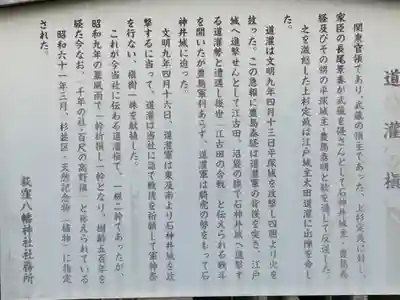 道灌槇
関東管領であり、武蔵の領主であった、上杉定義に対し、
家臣の長尾景春が武蔵を侵さんとして石神井城主・豊島泰
経及びその弟の平塚城主・豊島泰明と款を通して反逆した。
之を激怒した上杉定義は江戸城主太田道灌に出陣を命し
た。
道灌は文明九年四月十三日平塚城を攻撃し四囲より火を
放った。この急報に豊島泰経は道灌軍の背後を突き、江戸
城へ進撃せんとして江古田、沼袋の原で石神井城へ進撃す
る道灌勢と遭遇し後世「江古田の合戦」と伝えられる戦斗
を開いたが豊島軍利あらず、道灌軍は騎虎の勢をもって石
神井城に迫った。
文明九年四月十六日、道灌軍は東及南より石神井城を攻
撃するに当って、道灌は当社に詣で戦捷を祈願して軍神祭
を行ない、槇樹一株を献植した。
これが今当社に伝わる道灌槇で、一根二幹であったが、
昭和九年の暴風雨で一幹折損し一幹となり、樹齢五百年を
経た今なお、「千年の社・百尺の高野槇」と称えられている
昭和六十一年三月、杉並区・天然記念物（植物）に指定
された。
荻窪八幡神社社務所